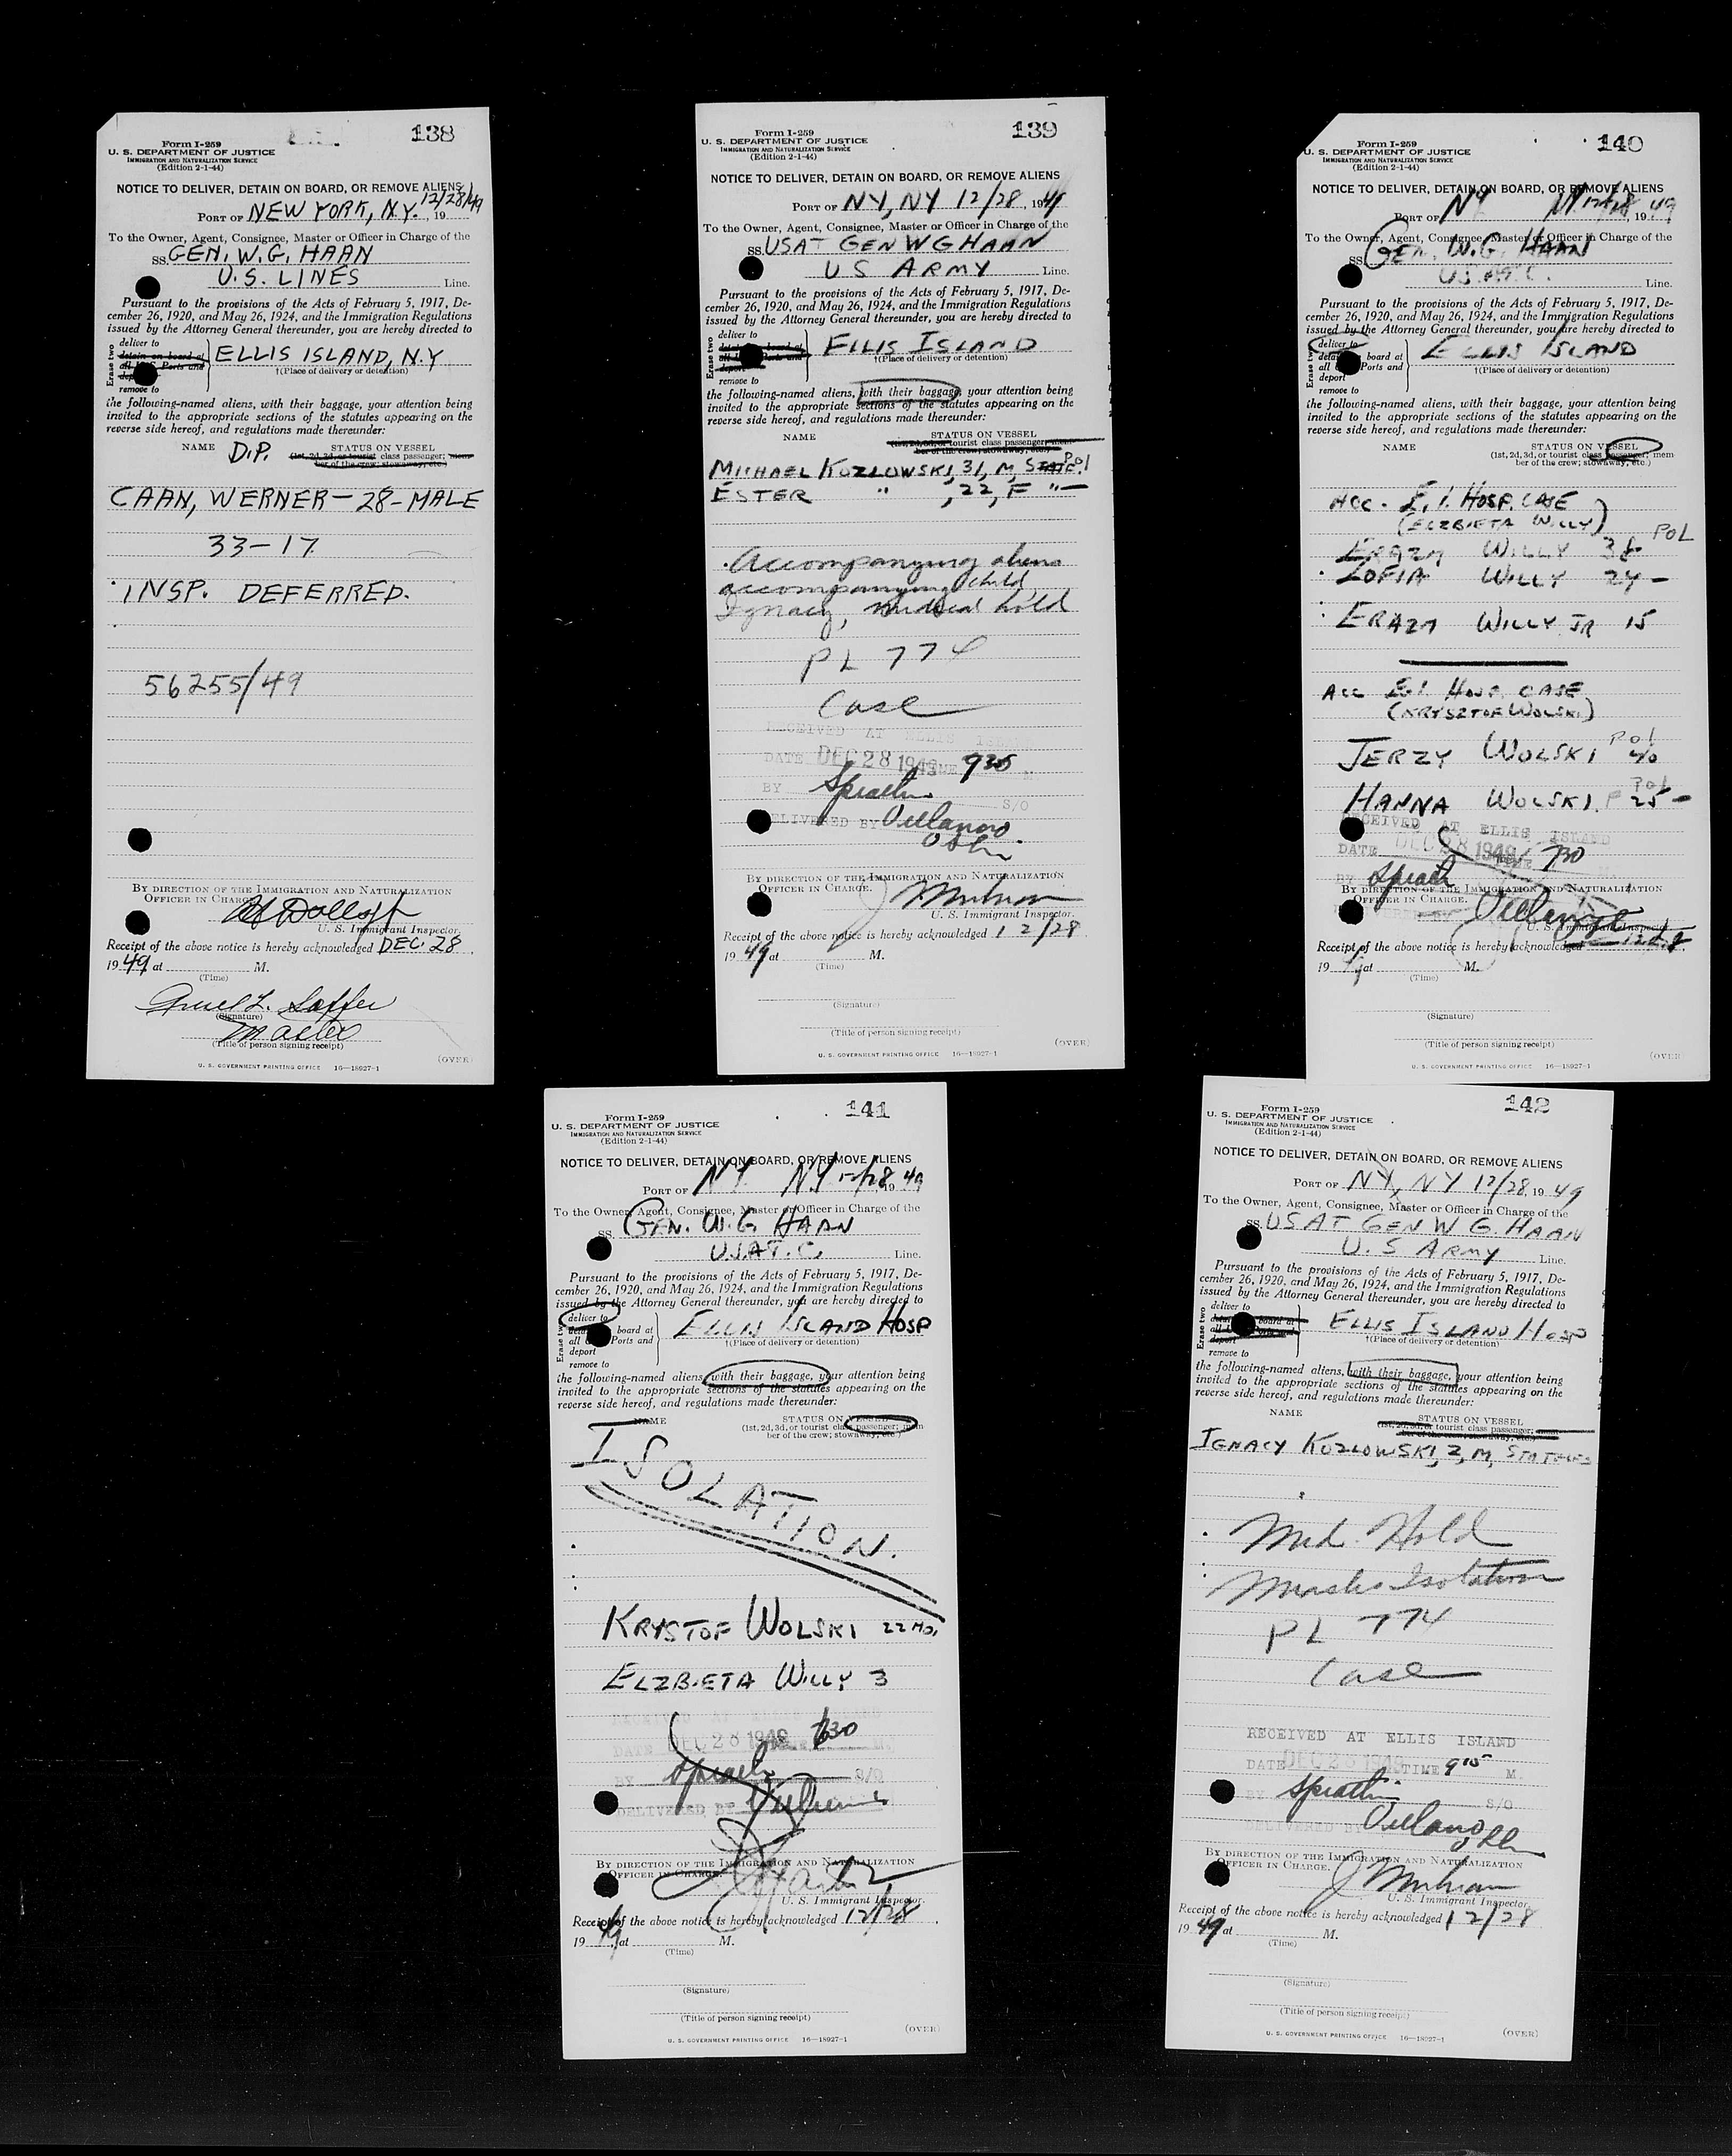 138
Form I-259
U. S. DEPARTMENT OF JUSTICE
IMMIGRATION AND NATURALIZATION SERVICE
(Edition 2-1-44)
NOTICE TO DELIVER, DETAIN ON BOARD, OR REMOVE ALIENS
PORT OF NEW YORK, N.Y. 12/28/49, 19
To the Owner, Agent, Consignee, Master or Officer in Charge of the
SS. GEN. W.G. HAAN
U.S. LINES Line.
Pursuant to the provisions of the Acts of February 5, 1917, De-
cember 26, 1920, and May 26, 1924, and the Immigration Regulations
issued by the Attorney General thereunder, you are hereby directed to
Erase two
deliver to
detain on board at
all Ports and
remove to
ELLIS ISLAND, N.Y
†(Place of delivery or detention)
the following-named aliens, with their baggage, your attention being
invited to the appropriate sections of the statutes appearing on the
reverse side hereof, and regulations made thereunder:
NAME D.P. STATUS ON VESSEL
(1st, 2d, 3d, or tourist class passenger; mem-
ber of the crew; stowaway, etc.)
CAAN, WERNER - 28 - MALE
33-17
INSP. DEFERRED.
56255/49
BY DIRECTION OF THE IMMIGRATION AND NATURALIZATION
OFFICER IN CHARGE.
U. S. Immigrant Inspector.
Receipt of the above notice is hereby acknowledged DEC. 28
19 49 at M.
(Time)
(Signature)
Master
(Title of person signing receipt)
(OVER)
U. S. GOVERNMENT PRINTING OFFICE 16—18927-1
139
Form I-259
U. S. DEPARTMENT OF JUSTICE
IMMIGRATION AND NATURALIZATION SERVICE
(Edition 2-1-44)
NOTICE TO DELIVER, DETAIN ON BOARD, OR REMOVE ALIENS
PORT OF NY, NY 12/28, 1949
To the Owner, Agent, Consignee, Master or Officer in Charge of the
SS. USAT GEN W G HAAN
U S ARMY Line.
Pursuant to the provisions of the Acts of February 5, 1917, De-
cember 26, 1920, and May 26, 1924, and the Immigration Regulations
issued by the Attorney General thereunder, you are hereby directed to
Erase two
deliver to
remove to
ELLIS ISLAND
†(Place of delivery or detention)
the following-named aliens, with their baggage, your attention being
invited to the appropriate sections of the statutes appearing on the
reverse side hereof, and regulations made thereunder:
NAME STATUS ON VESSEL
(1st, 2d, 3d, or tourist class passenger; mem-
ber of the crew; stowaway, etc.)
MICHAEL KOZLOWSKI, 31, M, STATE. Pol
ESTER " , 22, F " —
Accompanying aliens
accompanying child
Ignacy, medical hold
PL 774
Case
RECEIVED AT ELLIS ISLAND
DATE DEC 28 1949 TIME 935 M.
BY S/O
DELIVERED BY
BY DIRECTION OF THE IMMIGRATION AND NATURALIZATION
OFFICER IN CHARGE.
U. S. Immigrant Inspector.
Receipt of the above notice is hereby acknowledged 12/28
19 49 at M.
(Time)
(Signature)
(Title of person signing receipt)
(OVER)
U. S. GOVERNMENT PRINTING OFFICE 16—18927-1
140
Form I-259
U. S. DEPARTMENT OF JUSTICE
IMMIGRATION AND NATURALIZATION SERVICE
(Edition 2-1-44)
NOTICE TO DELIVER, DETAIN ON BOARD, OR REMOVE ALIENS
PORT OF NY NY 12/28 19 49
To the Owner, Agent, Consignee, Master or Officer in Charge of the
SS. GEN. W.G. HAAN
Line.
Pursuant to the provisions of the Acts of February 5, 1917, De-
cember 26, 1920, and May 26, 1924, and the Immigration Regulations
issued by the Attorney General thereunder, you are hereby directed to
Erase two
deliver to
board at
all Ports and
deport
remove to
ELLIS ISLAND
†(Place of delivery or detention)
the following-named aliens, with their baggage, your attention being
invited to the appropriate sections of the statutes appearing on the
reverse side hereof, and regulations made thereunder:
NAME STATUS ON VESSEL
(1st, 2d, 3d, or tourist class passenger; mem
ber of the crew; stowaway, etc.)
ACC. E.I. HOSP. CASE
(ELZBIETA WILLY)
ERAZM WILLY 38 POL
ZOFIA WILLY 24 —
ERAZM WILLY JR 15
ACC E.I. HOSP. CASE
(KRYSZTOF WOLSKI)
JERZY WOLSKI Pol 40
HANNA WOLSKI F Pol 25 —
RECEIVED AT ELLIS ISLAND
DATE DEC 28 1949 TIME 730
BY
BY DIRECTION OF THE IMMIGRATION AND NATURALIZATION
OFFICER IN CHARGE.
U. S. Immigrant Inspector.
Receipt of the above notice is hereby acknowledged 12/28
19 49 at M.
(Time)
(Signature)
(Title of person signing receipt)
(OVER)
U. S. GOVERNMENT PRINTING OFFICE 16—18927-1
141
Form I-259
U. S. DEPARTMENT OF JUSTICE
IMMIGRATION AND NATURALIZATION SERVICE
(Edition 2-1-44)
NOTICE TO DELIVER, DETAIN ON BOARD, OR REMOVE ALIENS
PORT OF NY NY 12/28, 19 49
To the Owner, Agent, Consignee, Master or Officer in Charge of the
SS. GEN. W.G. HAAN
U.S.A.T.C. Line.
Pursuant to the provisions of the Acts of February 5, 1917, De-
cember 26, 1920, and May 26, 1924, and the Immigration Regulations
issued by the Attorney General thereunder, you are hereby directed to
Erase two
deliver to
board at
all Ports and
deport
remove to
ELLIS ISLAND HOSP
†(Place of delivery or detention)
the following-named aliens, with their baggage, your attention being
invited to the appropriate sections of the statutes appearing on the
reverse side hereof, and regulations made thereunder:
NAME STATUS ON VESSEL
(1st, 2d, 3d, or tourist class passenger; mem
ber of the crew; stowaway, etc.)
ISOLATION.
KRYSTOF WOLSKI 22 MO.
ELZBIETA WILLY 3
RECEIVED AT ELLIS ISLAND
DATE DEC 28 1949 730 M.
BY S/O
DELIVERED BY
BY DIRECTION OF THE IMMIGRATION AND NATURALIZATION
OFFICER IN CHARGE.
U. S. Immigrant Inspector.
Receipt of the above notice is hereby acknowledged 12/28
19 49 at M.
(Time)
(Signature)
(Title of person signing receipt)
(OVER)
U. S. GOVERNMENT PRINTING OFFICE 16—18927-1
142
Form I-259
U. S. DEPARTMENT OF JUSTICE
IMMIGRATION AND NATURALIZATION SERVICE
(Edition 2-1-44)
NOTICE TO DELIVER, DETAIN ON BOARD, OR REMOVE ALIENS
PORT OF NY, NY 12/28, 19 49
To the Owner, Agent, Consignee, Master or Officer in Charge of the
SS. USAT GEN W G. HAAN
U.S ARMY Line.
Pursuant to the provisions of the Acts of February 5, 1917, De-
cember 26, 1920, and May 26, 1924, and the Immigration Regulations
issued by the Attorney General thereunder, you are hereby directed to
Erase two
deliver to
board at
deport
remove to
ELLIS ISLAND HOSP
†(Place of delivery or detention)
the following-named aliens, with their baggage, your attention being
invited to the appropriate sections of the statutes appearing on the
reverse side hereof, and regulations made thereunder:
NAME STATUS ON VESSEL
(1st, 2d, 3d, or tourist class passenger;
ber of the crew; stowaway, etc.)
IGNACY KOZLOWSKI, 2, M, STATELES
Med. Hold
Measles Isolation
PL 774
Case
RECEIVED AT ELLIS ISLAND
DATE DEC 28 1949 TIME 915 M.
BY S/O
DELIVERED BY
BY DIRECTION OF THE IMMIGRATION AND NATURALIZATION
OFFICER IN CHARGE.
U. S. Immigrant Inspector.
Receipt of the above notice is hereby acknowledged 12/28
19 49 at M.
(Time)
(Signature)
(Title of person signing receipt)
(OVER)
U. S. GOVERNMENT PRINTING OFFICE 16—18927-1